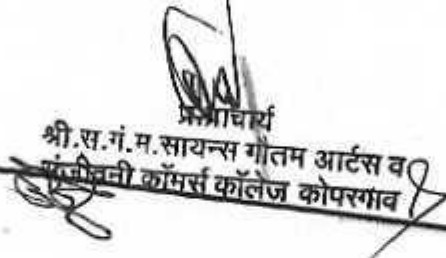 प्राचार्य
श्री.स.गं.म.सायन्स गौतम आर्टस व
संजीवनी कॉमर्स कॉलेज कोपरगाव